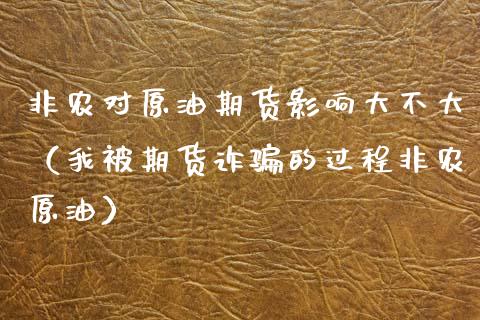 非农对原油期货影响大不大
（我被期货诈骗的过程非农
原油）